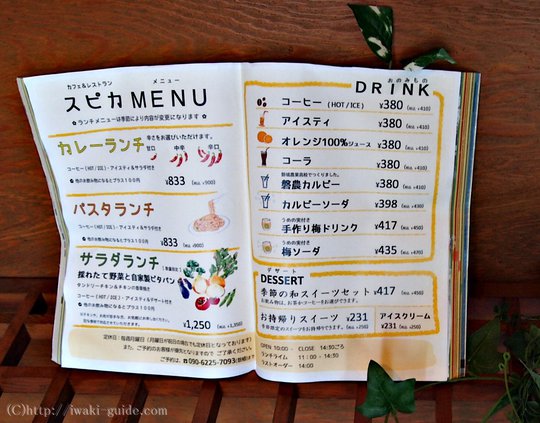 カフェ&レストラン
メニュー
スピカ MENU
✿ランチメニューは季節により内容が変更になります✿
カレーランチ
辛さをお選びいただけます。
甘口 中辛 辛口
コーヒー(HOT/ICE)・アイスティ&サラダ付き
✿他のお飲み物になるとプラス100円
¥833 (税込 ¥900)
パスタランチ
コーヒー(HOT/ICE)・アイスティ&サラダ付き
✿他のお飲み物になるとプラス100円
¥833 (税込 ¥900)
サラダランチ
採れたて野菜と自家製ピタパン
タンドリーチキン&チキンの香草焼き
コーヒー(HOT/ICE)・アイスティ&デザート付き
✿他のお飲み物になるとプラス100円
¥1,250 (税込 ¥1,350)
定休日:毎週月曜日(月曜日が祝日の場合でも定休日となっております)
また、ご予約のお客様が優先になりますので ご了承ください。
ご予約は、☎090-6225-7093
おのみもの
DRINK
コーヒー (HOT/ICE) ¥380 (税込 ¥410)
アイスティ ¥380 (税込 ¥410)
オレンジ100%ジュース ¥380 (税込 ¥410)
コーラ ¥380 (税込 ¥410)
磐城農業高校でつくりました。
磐農カルピー ¥380 (税込 ¥410)
カルピーソーダ ¥398 (税込 ¥430)
うめの実付き
手作り梅ドリンク ¥417 (税込 ¥450)
うめの実付き
梅ソーダ ¥435 (税込 ¥470)
デザート
DESSERT
季節の和スイーツセット ¥417 (税込 ¥450)
お飲み物は、お茶かコーヒーをお選びできます。
お持帰りスイーツ ¥231 (税込 ¥250)
季節限定のスイーツをお持帰りできます。
アイスクリーム ¥231 (税込 ¥250)
OPEN 10:00 - CLOSE 14:30ごろ
ランチタイム 11:00 - 14:30
ラストオーダー 14:00
(C)http://iwaki-guide.com